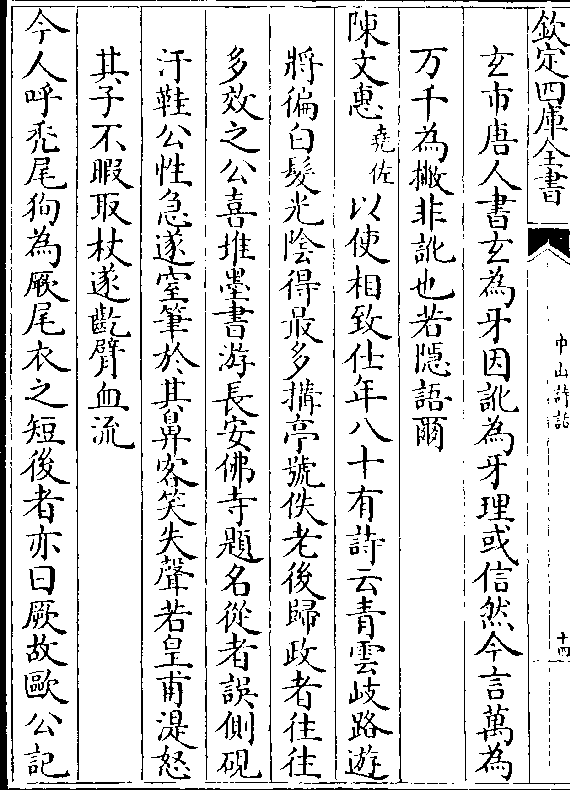 欽定四庫全書
中山詩話
十四
玄市唐人書玄為牙因訛為牙理或信然今言萬為
万千為撇非訛也若隱語爾
陳文惠堯佐以使相致仕年八十有詩云青雲岐路遊
將徧白髮光陰得最多搆亭號佚老後歸政者往往
多效之公喜堆墨書游長安佛寺題名從者誤側硯
汙鞋公性急遂窒筆於其鼻客笑失聲若皇甫湜怒
其子不暇取杖遂齕臂血流
今人呼禿尾狗為厥尾衣之短後者亦曰厥故歐公記